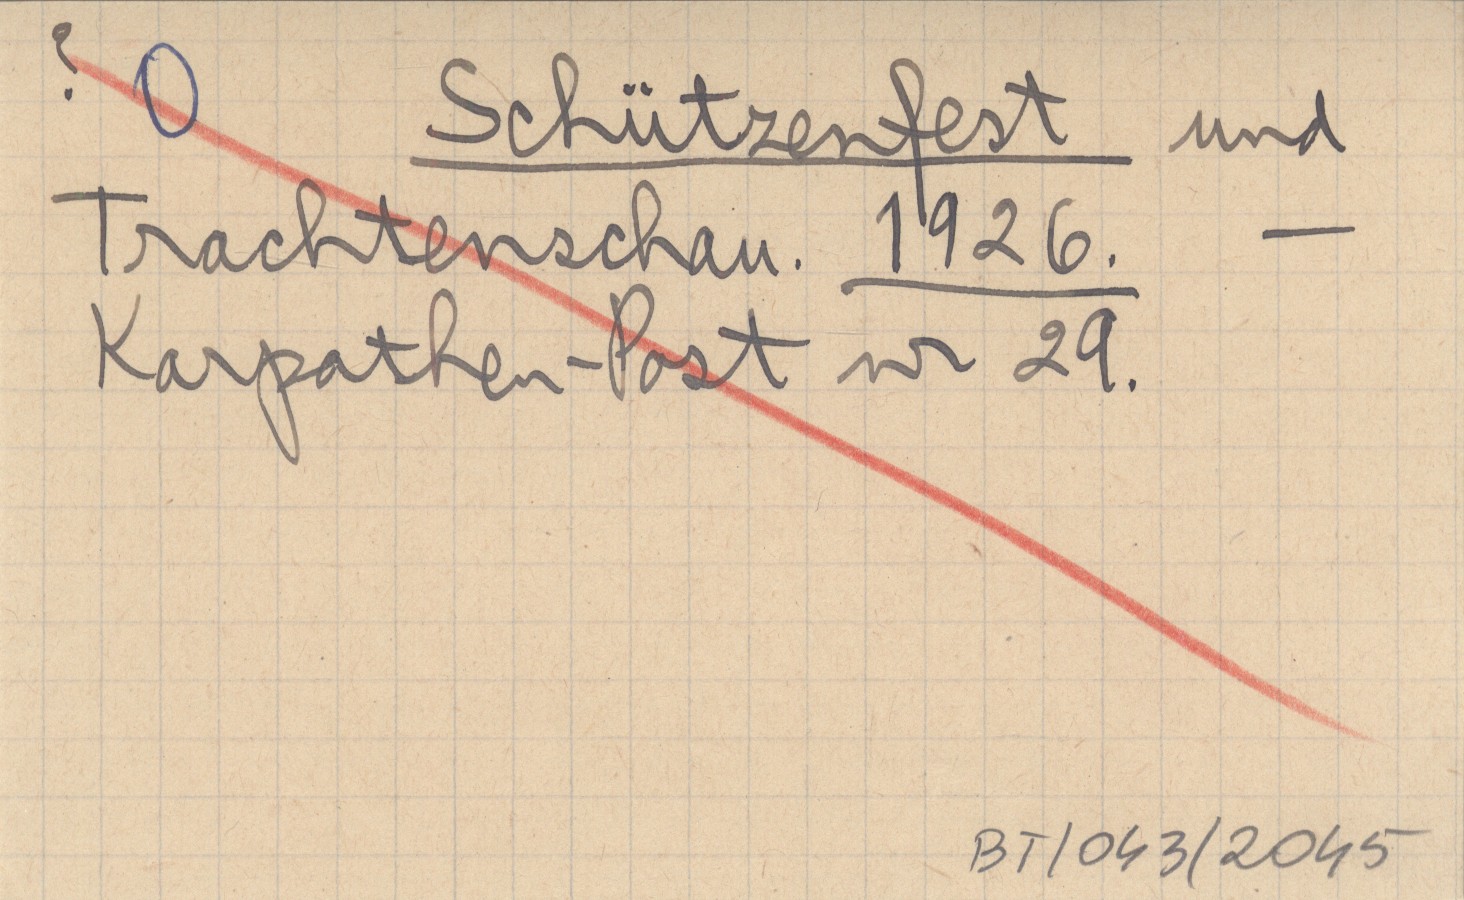 ? 0 Schützenfest und
Trachtenschau. 1926. —
Karpathen-Post nr 29.
BT/043/2045